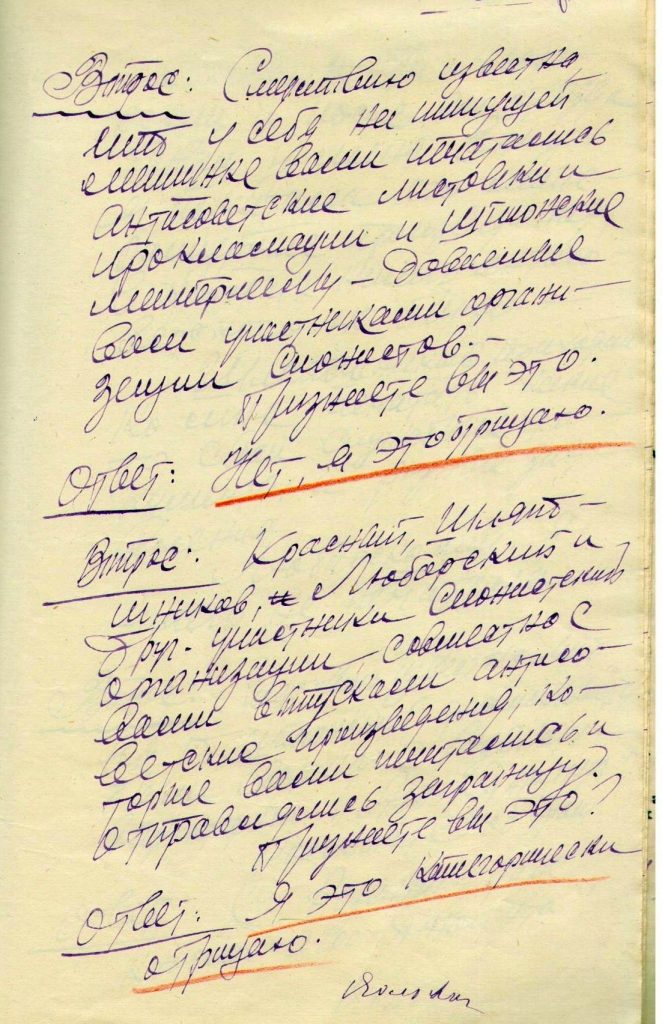 Вопрос: Следствию известно,
что у себя на пишущей
машинке вами печатались
антисоветские листовки и
прокламации и шпионские
материалы – даваемые
вам участниками органи-
зации сионистов. –
Признаете вы это.
Ответ: Нет, я это отрицаю.
Вопрос: Краснап, Шляпо-
шников, и Любарский и
друг. участники сионистской
организации, совместно с
вами выпускали антисо-
ветские произведения, ко-
торые вами печатались и
отправлялись заграницу.
Признаете вы это?
Ответ: Я это категорически
отрицаю.